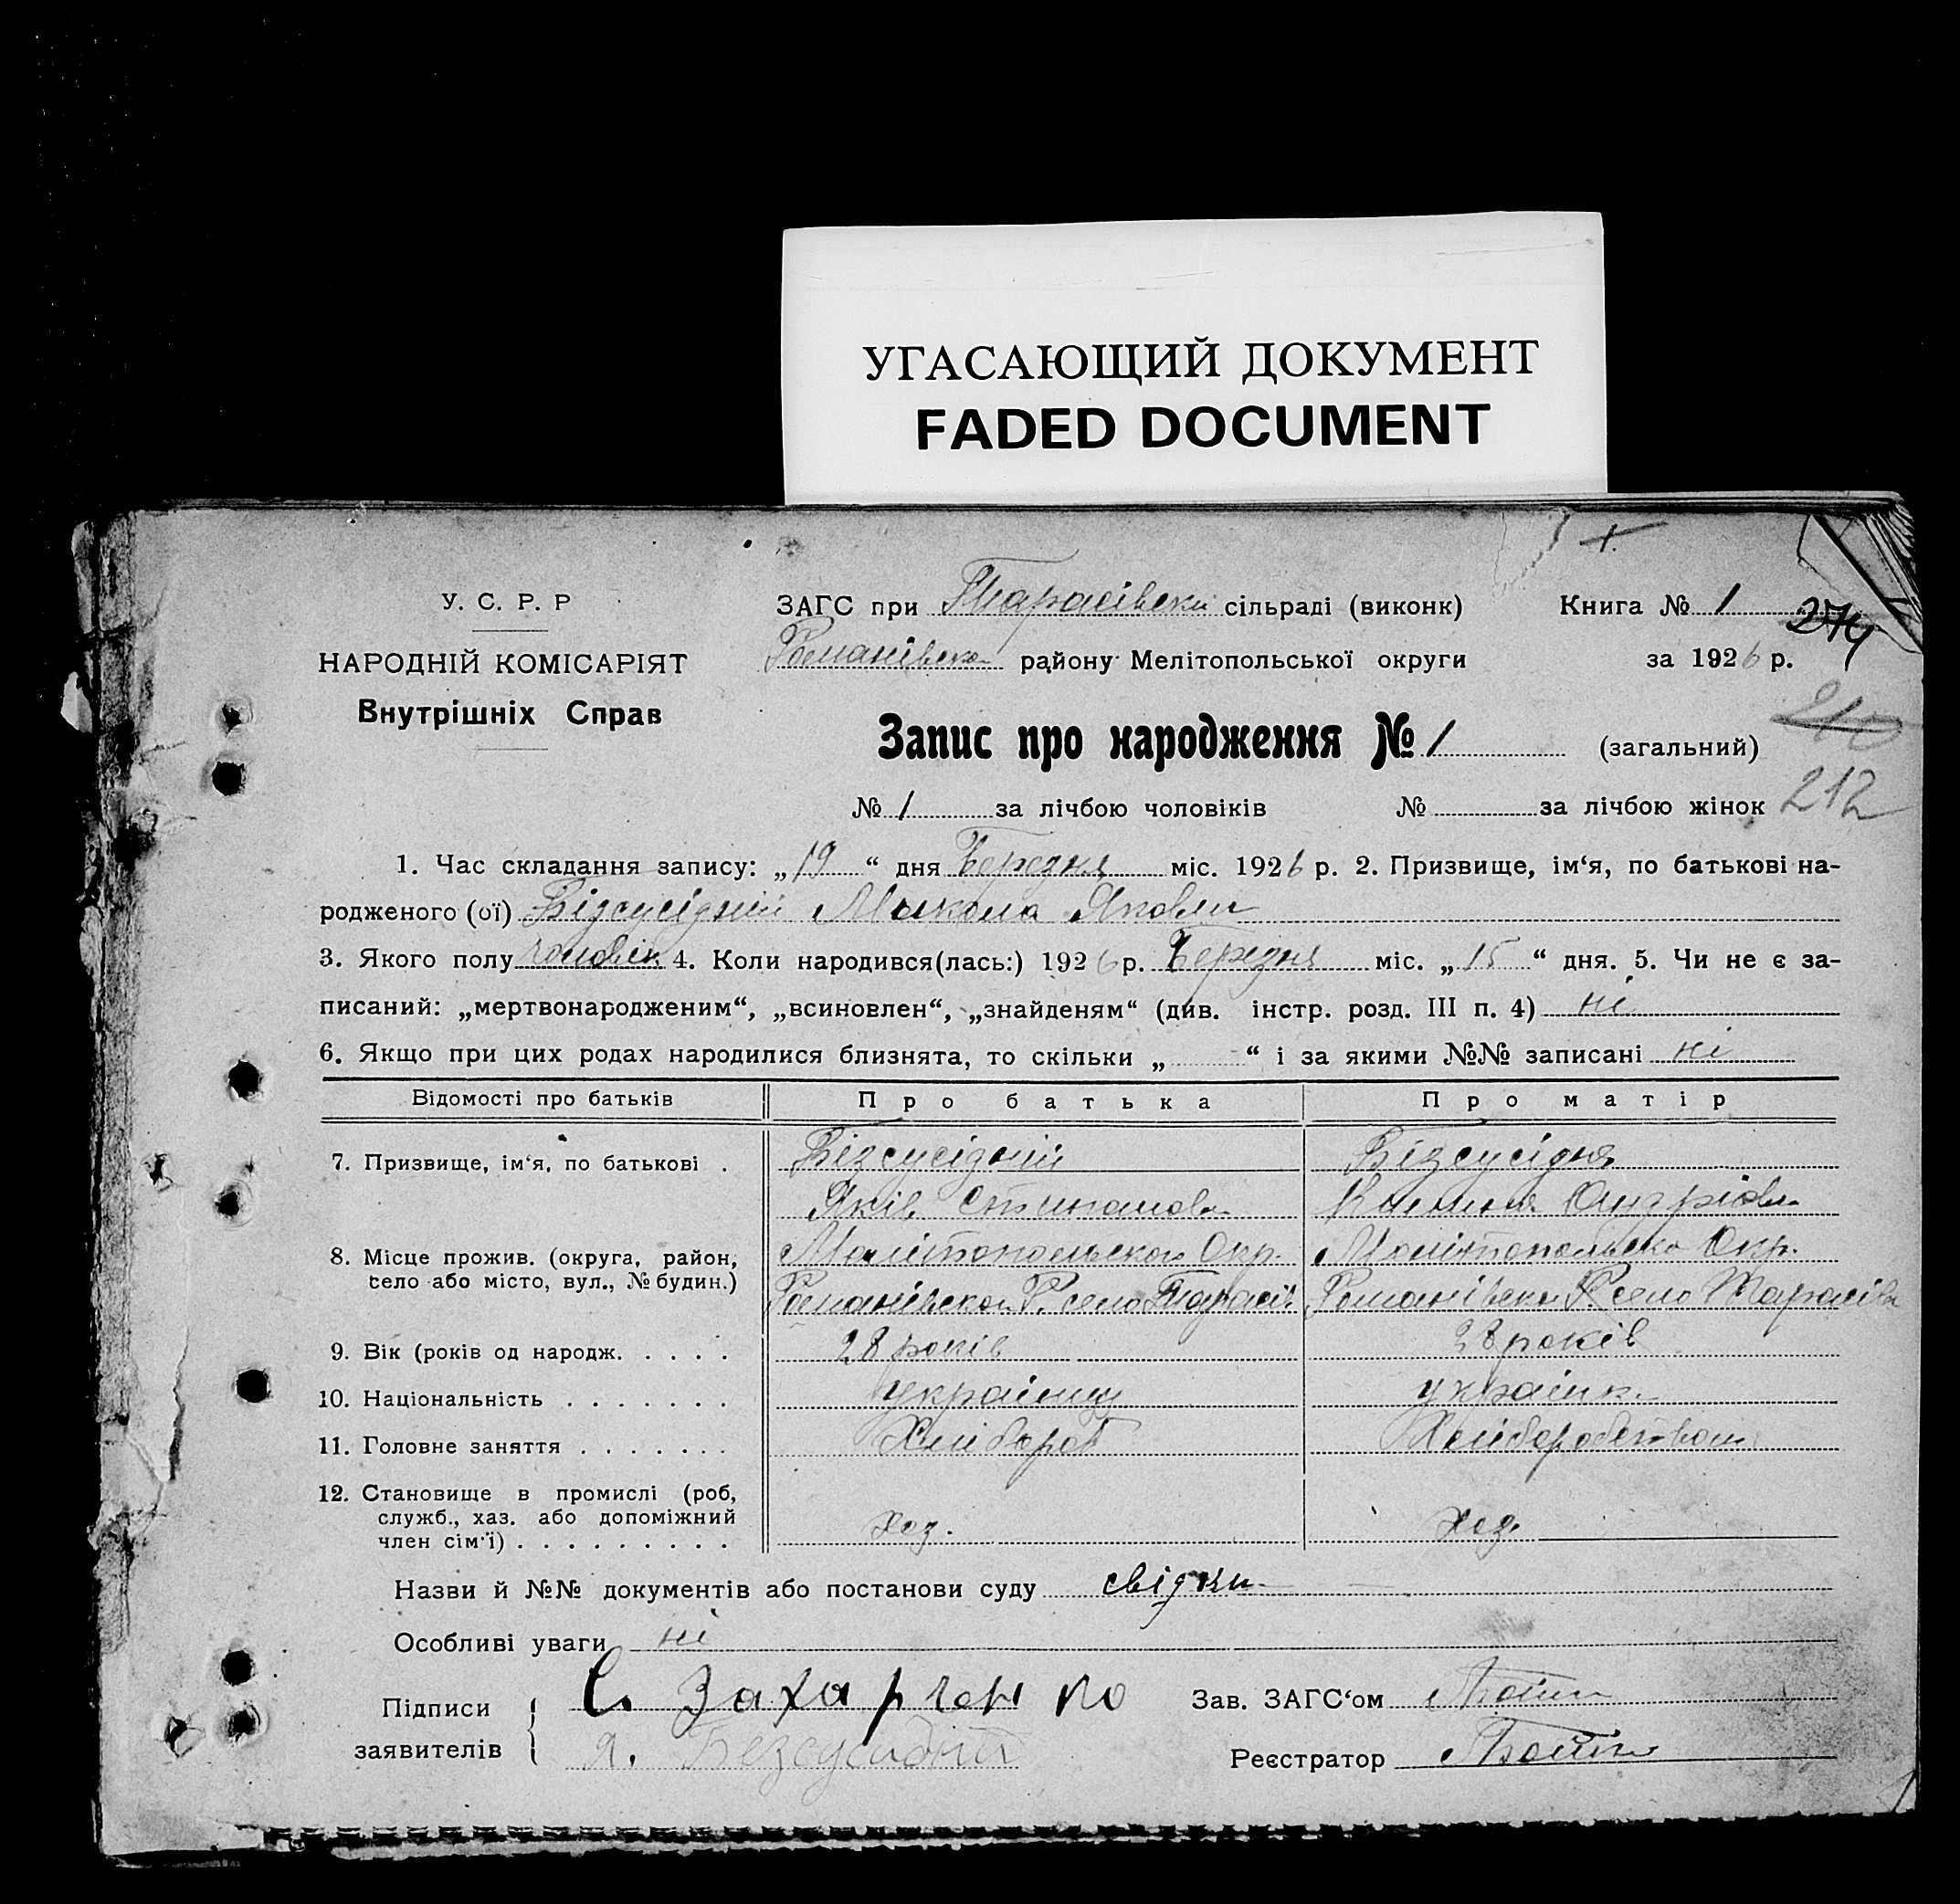 УГАСАЮЩИЙ ДОКУМЕНТ
FADED DOCUMENT
У. С. Р. Р
НАРОДНІЙ КОМІСАРІЯТ
Внутрішніх Справ
ЗАГС при Тарасівскі сільраді (виконк)
Романівско району Мелітопольської округи
Книга № 1
274
за 1926 р.
Запис про народження № 1 (загальний)
210
№ 1 за лічбою чоловіків № за лічбою жінок
212
1. Час складання запису: „19“ дня Березня міс. 1926 р. 2. Призвище, ім‘я, по батькові на-
родженого (ої) Бізсусідний Микола Яковли
3. Якого полу чоловік 4. Коли народився(лась:) 1926 р. Березня міс. „15“ дня. 5. Чи не є за-
писаний: „мертвонародженим“, „всиновлен“, „знайденям“ (див. інстр. розд. III п. 4) ні
6. Якщо при цих родах народилися близнята, то скільки „ “ і за якими №№ записані ні
Відомості про батьків Про батька Про матір
7. Призвище, ім‘я, по батькові . Бізсусідний Бізсусідня
Яків
8. Місце прожив. (округа, район, Окр. Окр.
село або місто, вул., № будин.) Р. село Тарасів. Р. село Тарасівка
9. Вік (років од народж. . . . . 28 років 28 років
10. Національність . . . . . . . українец українк
11. Головне заняття . . . . . . . Хлібороб
12. Становище в промислі (роб,
служб., хаз. або допоміжний Хоз. Хоз.
член сім‘ї) . . . . . . . . .
Назви й №№ документів або постанови суду свідки
Особливі уваги ні
Підписи С. Захарченко Зав. ЗАГС‘ом
заявителів Я. Безсусидній Реєстратор